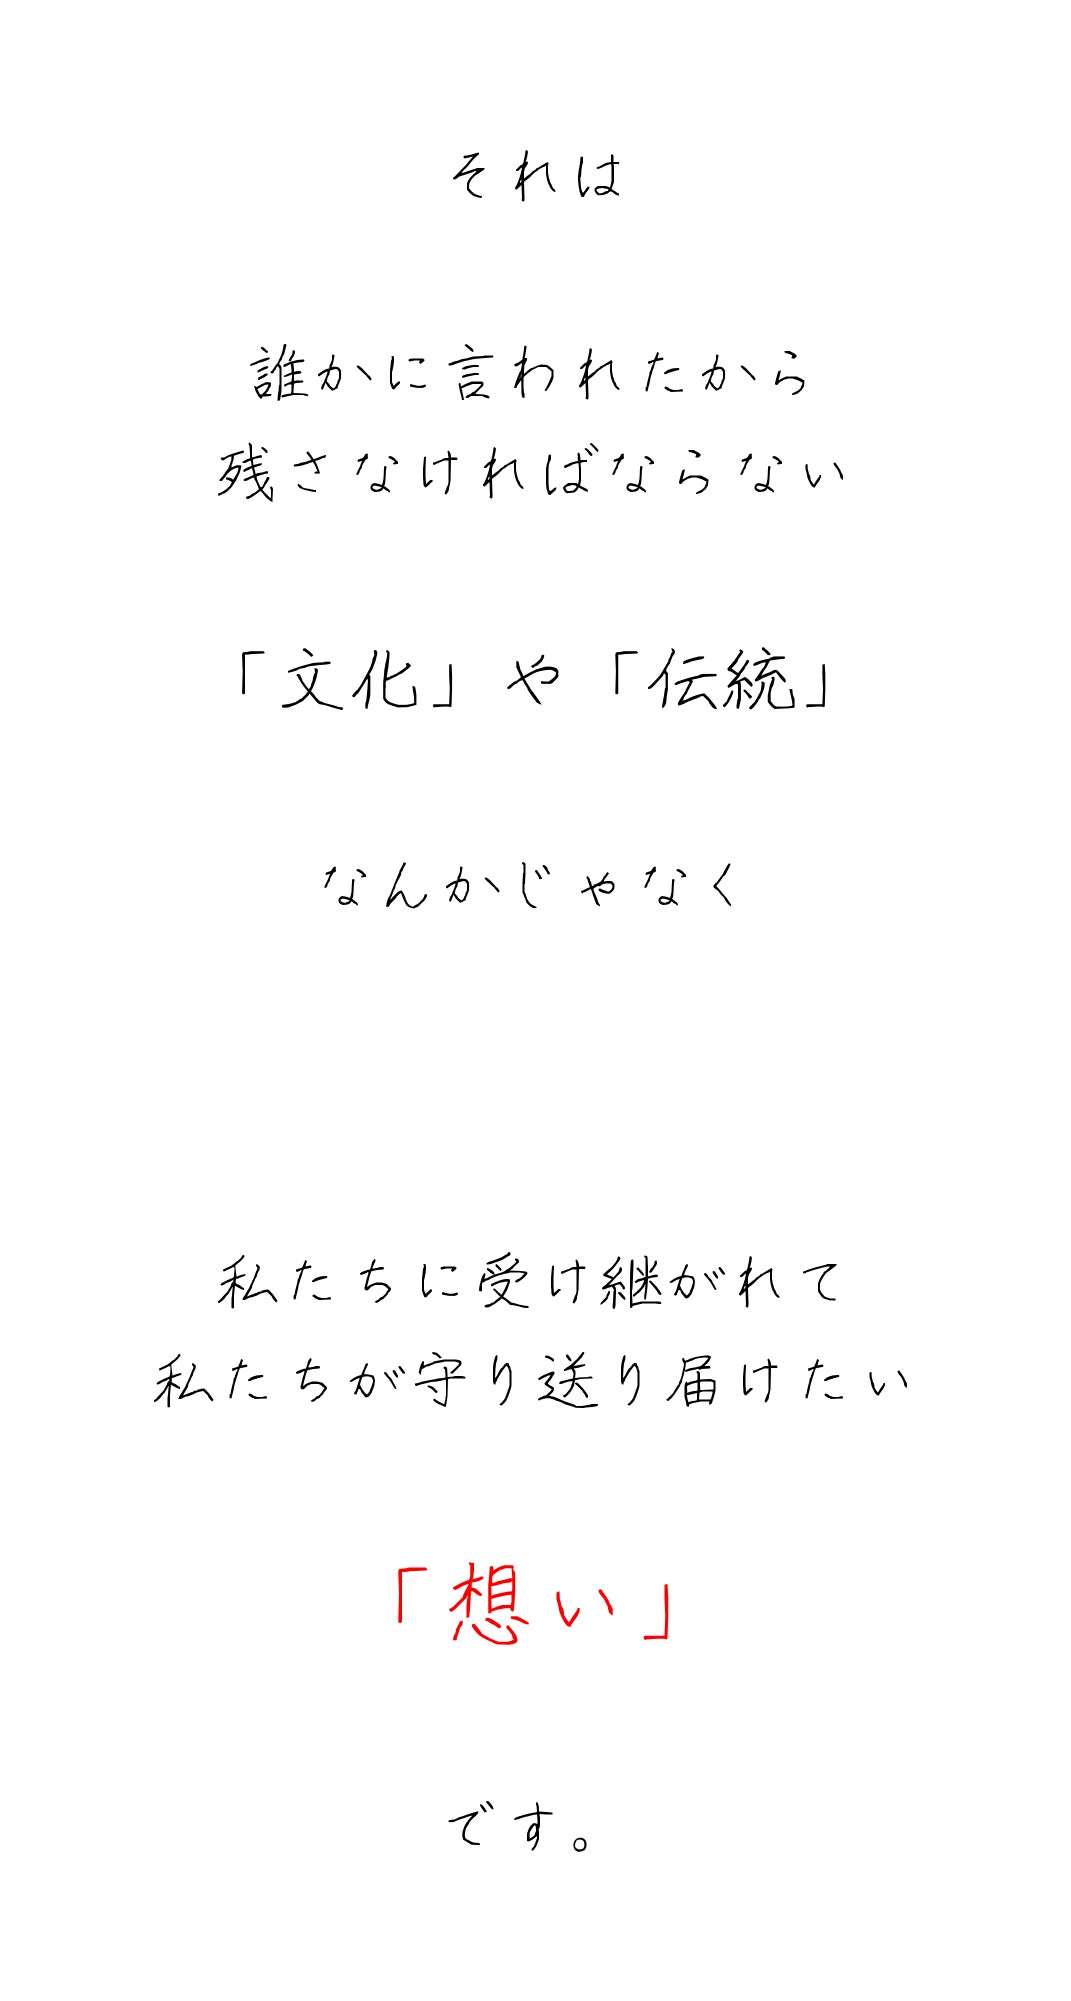 それは
誰かに言われたから
残さなければならない
「文化」や「伝統」
なんかじゃなく
私たちに受け継がれて
私たちが守り送り届けたい
「想い」
です。